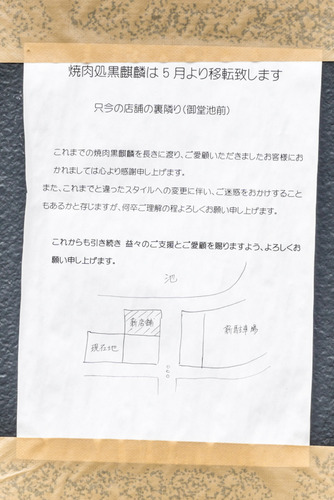 焼肉処黒麒麟は５月より移転致します
只今の店舗の裏隣り（御堂池前）
これまでの焼肉黒麒麟を長きに渡り、ご愛顧いただきましたお客様にお
かれましては心より感謝申し上げます。
また、これまでと違ったスタイルへの変更に伴い、ご迷惑をおかけすること
もあるかと存じますが、何卒ご理解の程よろしくお願い申し上げます。
これからも引き続き 益々のご支援とご愛顧を賜りますよう、よろしくお
願い申し上げます。
池
新店舗
新駐車場
現在地